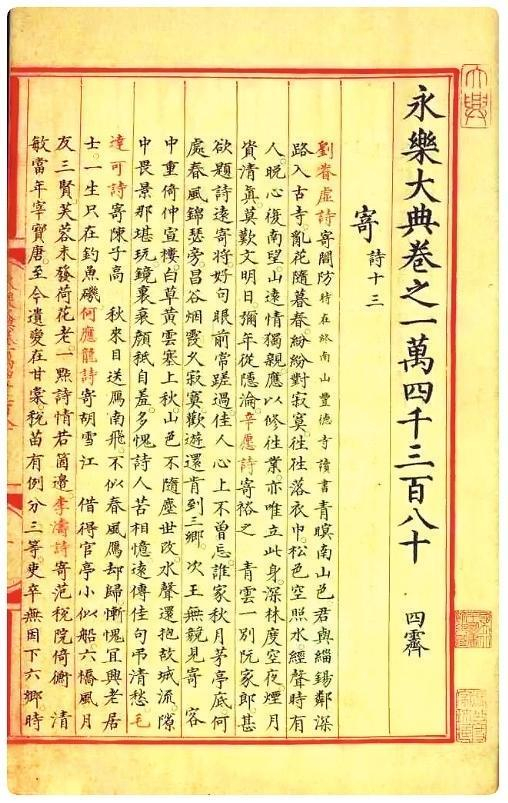 永樂大典卷之一萬四千三百八十　四霽
寄　詩十三
劉眘虛詩寄閻防時在終南山豐德寺讀書青暝南山色君與緇錫鄰深
路入古寺亂花隨暮春紛紛對寂寞往往落衣巾松色空照水經聲時有
人晚心復南望山遠情獨親應以修往業亦唯立此身深林度空夜煙月
資清真莫歎文明日彌年從隱淪辛愿詩寄裕之　青雲一別阮家郎甚
欲題詩遠寄將好句眼前常蹉過佳人心上不曾忘誰家秋月茅亭底何
處春風錦瑟旁昌谷烟霞久寂寞歡遊還肯到三鄉　次王無競見寄　客
中重倚仲宣樓白草黃雲塞上秋山色不隨塵世改水聲還抱故城流隙
中畏景那堪玩鏡裏衰顏秪自羞多愧詩人苦相憶遠傳佳句弔清愁毛
達可詩寄陳子高　秋來目送鴈南飛不似春風鴈却歸慚愧宜興老居
士一生只在釣魚磯何應龍詩寄胡雪江　借得官亭小似船六橋風月
友三賢芙蓉未發荷花老一點詩情若箇邊李濤詩寄范稅院倚衡　清
敏當年宰寶唐至今遺愛在甘棠稅苗有例分三等吏卒無因下六鄉時